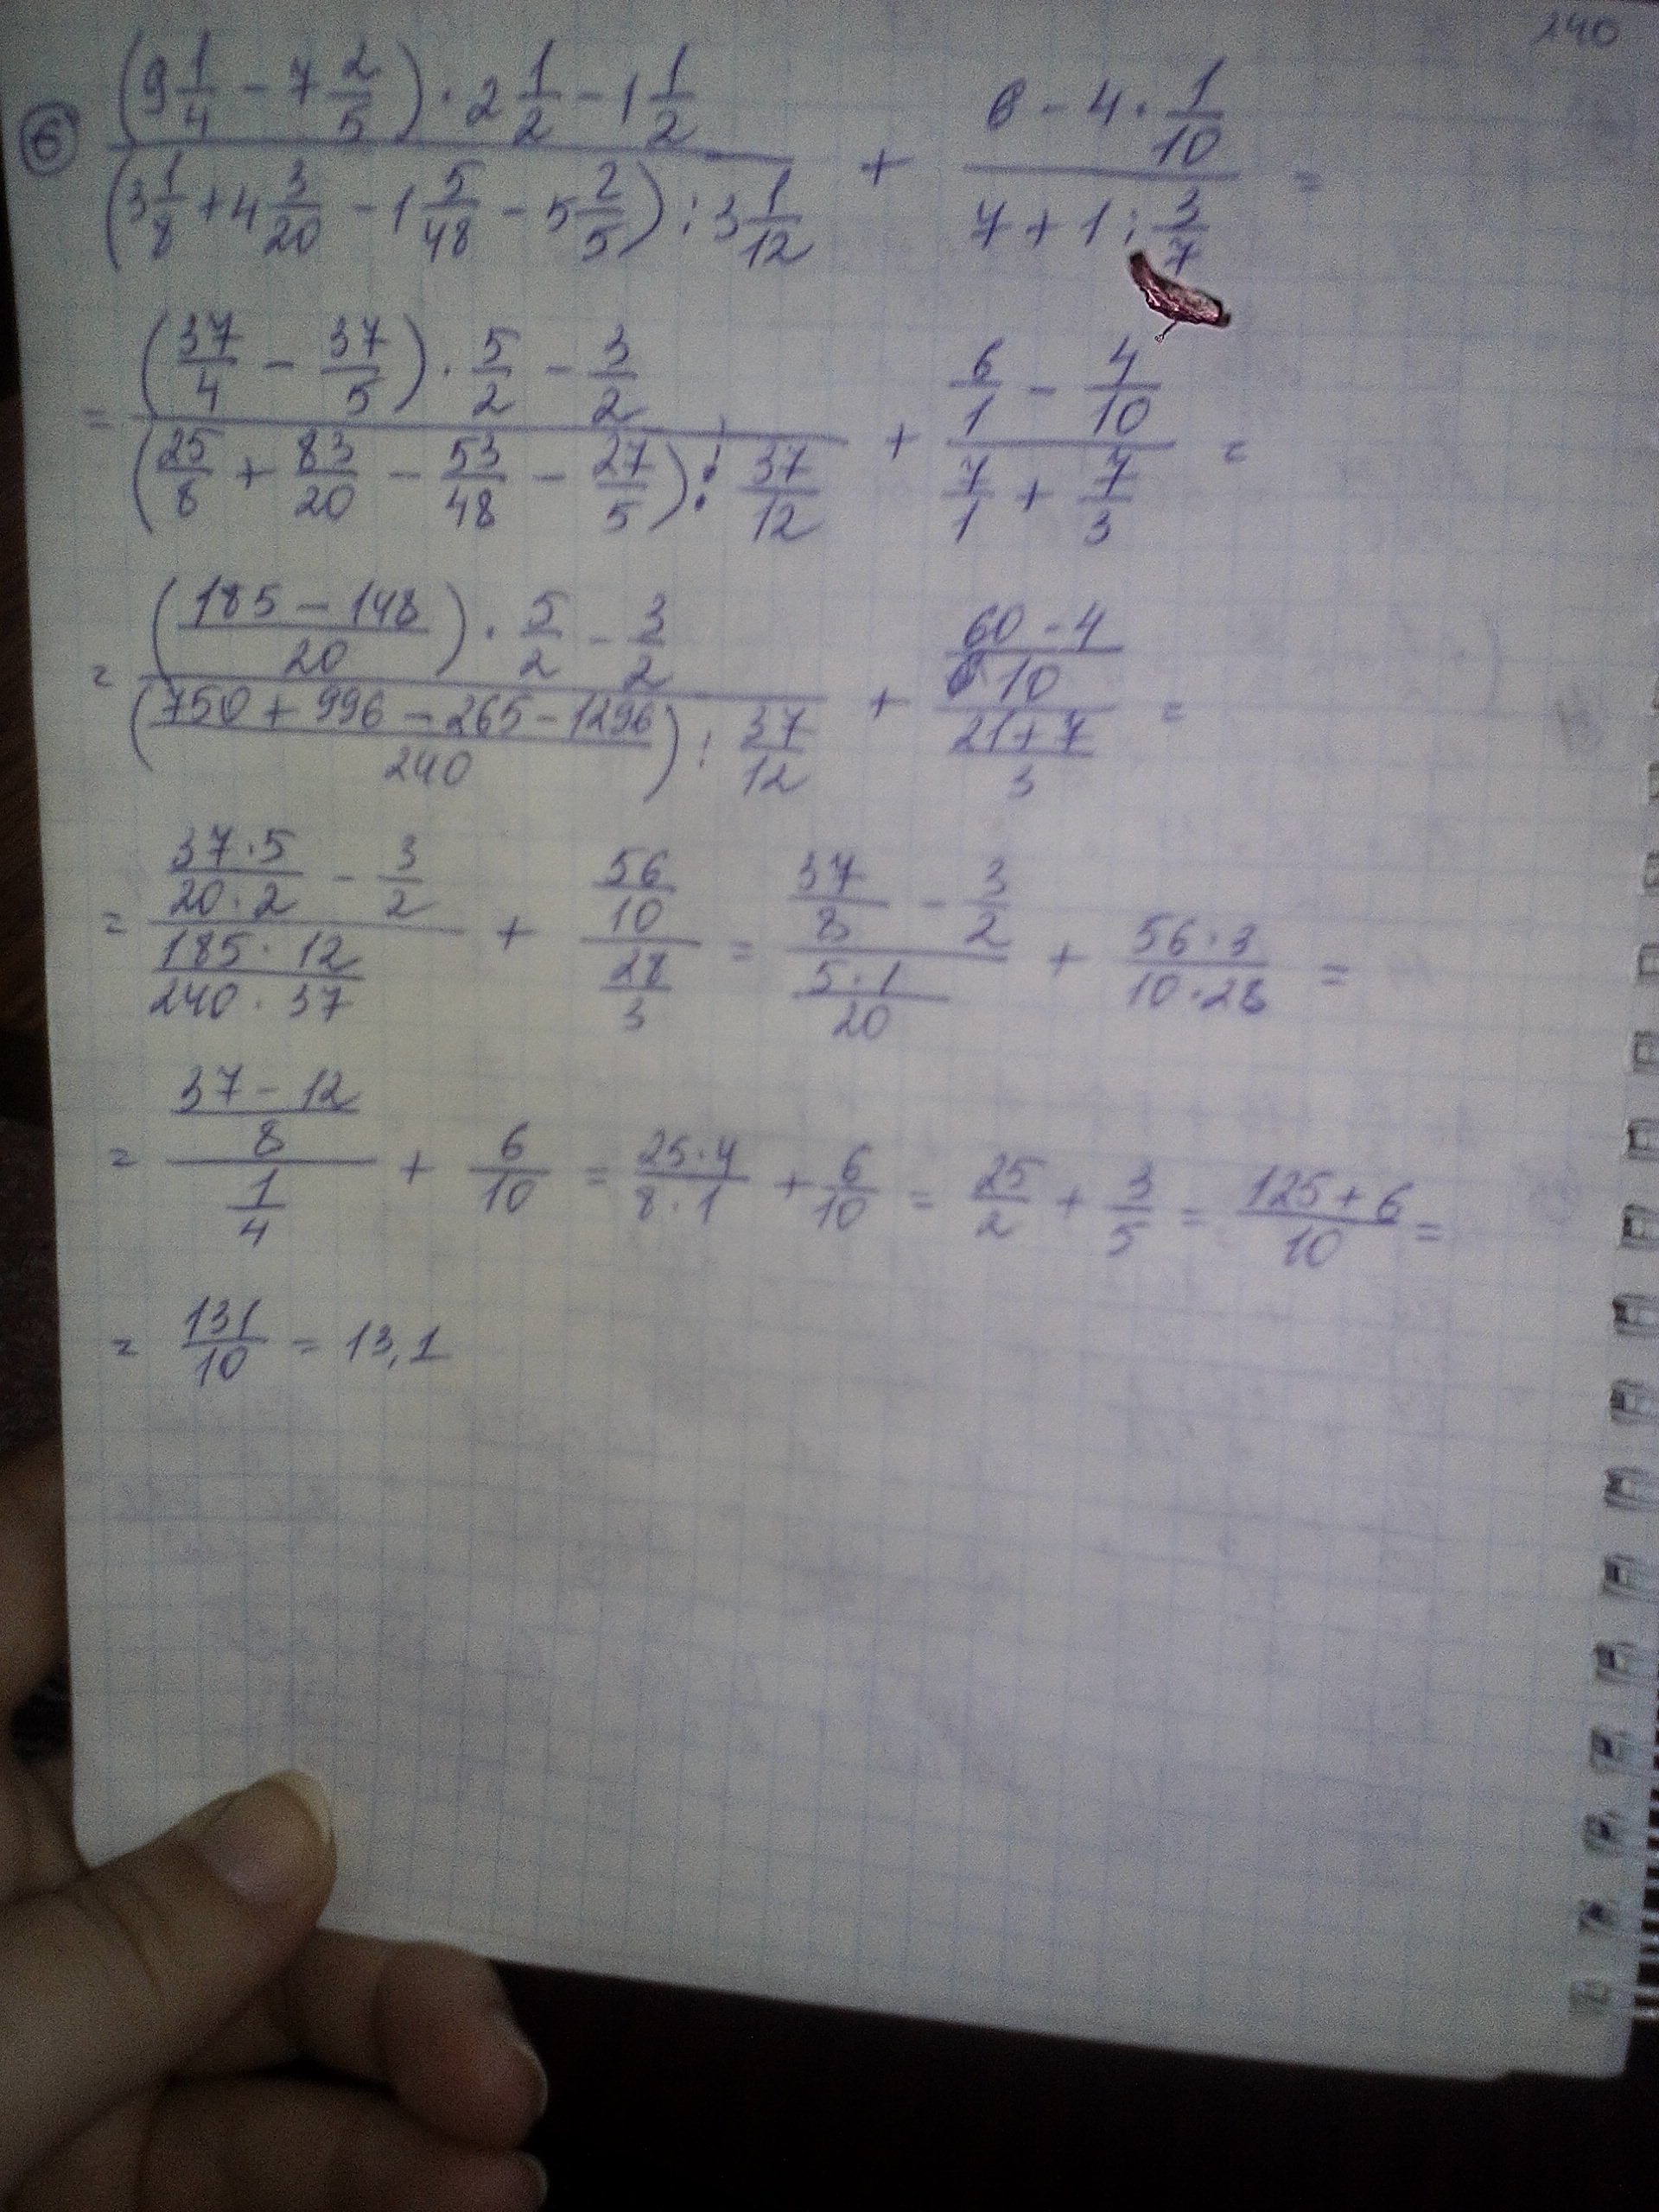 240
⑥ ((9 1/4 - 7 2/5) · 2 1/2 - 1 1/2) / ((3 1/8 + 4 3/20 - 1 5/48 - 5 2/5) : 3 1/12) + (6 - 4 · 1/10) / (7 + 1 : 3/7) =
= ((37/4 - 37/5) · 5/2 - 3/2) / ((25/8 + 83/20 - 53/48 - 27/5) : 37/12) + (6/1 - 4/10) / (7/1 + 7/3) =
= (((185 - 148)/20) · 5/2 - 3/2) / (((750 + 996 - 265 - 1296)/240) : 37/12) + ((60 - 4)/10) / ((21 + 7)/3) =
= ((37 · 5)/(20 · 2) - 3/2) / ((185 · 12)/(240 · 37)) + (56/10) / (28/3) = (37/8 - 3/2) / ((5 · 1)/20) + (56 · 3)/(10 · 28) =
= ((37 - 12)/8) / (1/4) + 6/10 = (25 · 4)/(8 · 1) + 6/10 = 25/2 + 3/5 = (125 + 6)/10 =
= 131/10 = 13,1